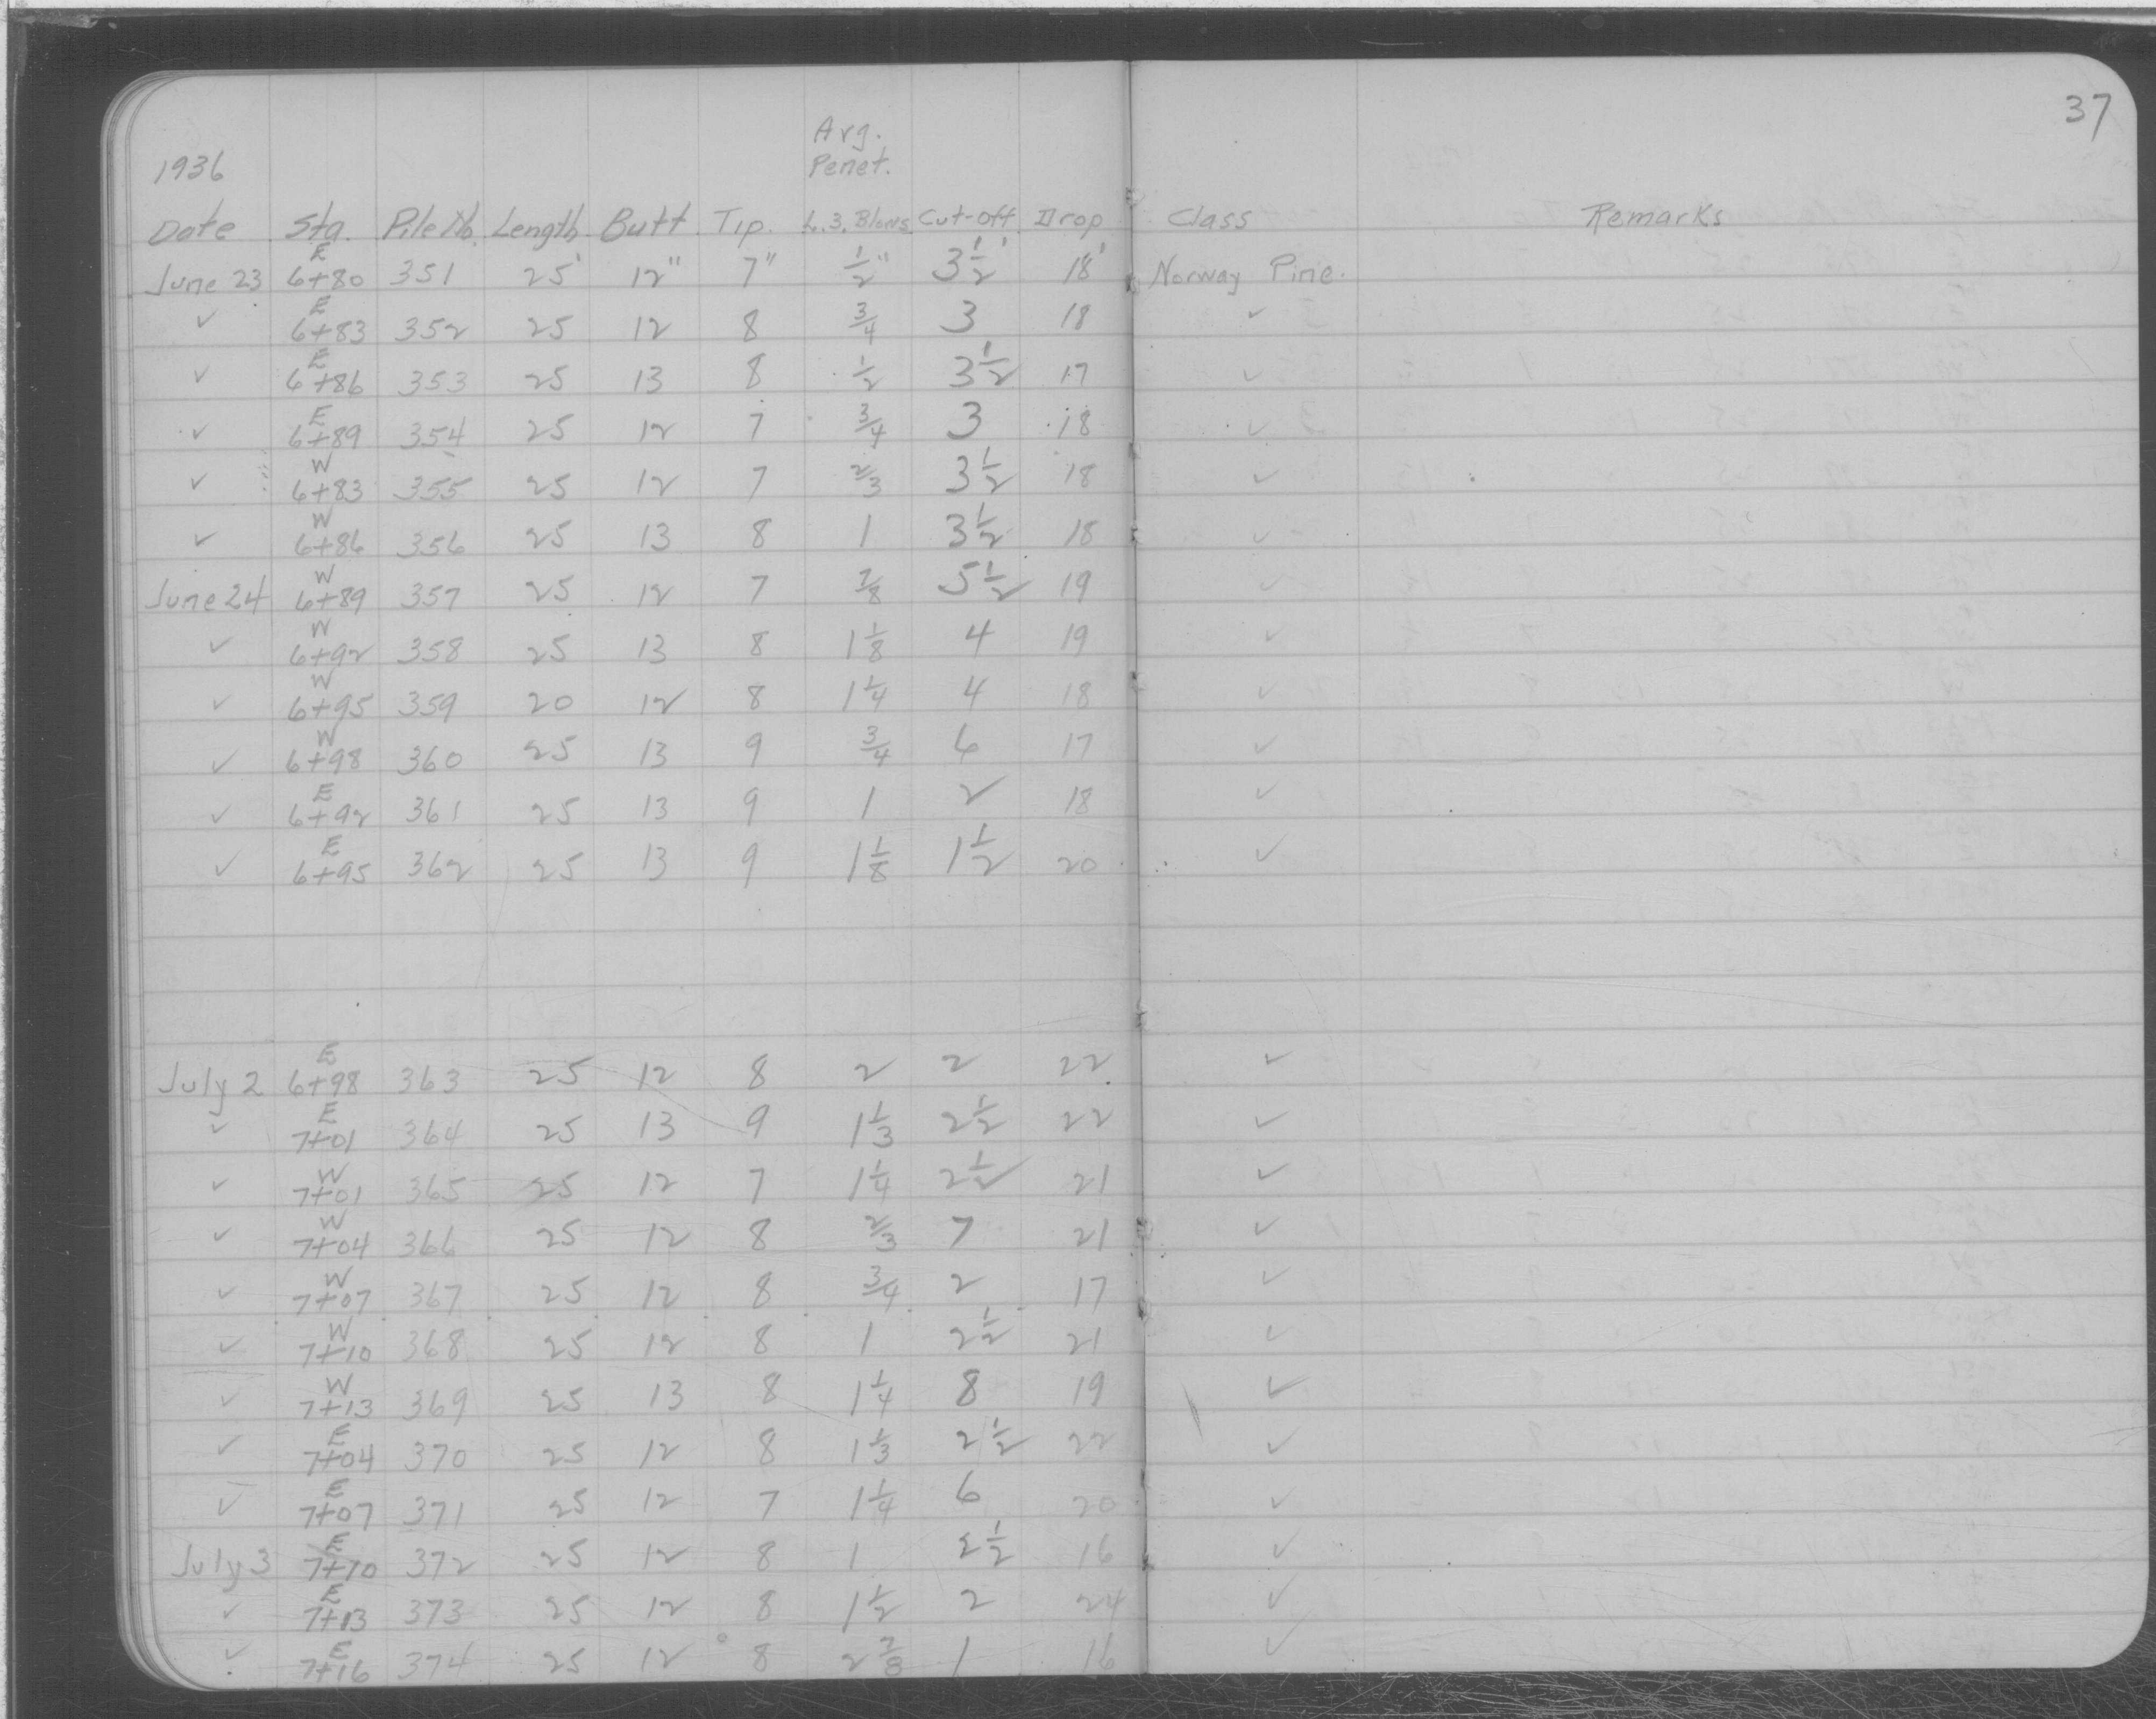 37
Avg.
1936 Penet.
Date Sta. Pile No. Length Butt Tip. L. 3. Blows Cut-off Drop Class Remarks
E
June 23 6+80 351 25' 12" 7" 1/2" 3 1/2' 18' Norway Pine.
E
✓ 6+83 352 25 12 8 3/4 3 18 ✓
E
✓ 6+86 353 25 13 8 1/2 3 1/2 17 ✓
E
✓ 6+89 354 25 12 7 3/4 3 18 ✓
W
✓ 6+83 355 25 12 7 2/3 3 1/2 18 ✓
W
✓ 6+86 356 25 13 8 1 3 1/2 18 ✓
W
June 24 6+89 357 25 12 7 7/8 5 1/2 19 ✓
W
✓ 6+92 358 25 13 8 1 1/8 4 19 ✓
W
✓ 6+95 359 20 12 8 1 1/4 4 18 ✓
W
✓ 6+98 360 25 13 9 3/4 6 17 ✓
E
✓ 6+92 361 25 13 9 1 2 18 ✓
E
✓ 6+95 362 25 13 9 1 1/8 1 1/2 20 ✓
E
July 2 6+98 363 25 12 8 2 2 22 ✓
E
✓ 7+01 364 25 13 9 1 1/3 2 1/2 22 ✓
W
✓ 7+01 365 25 12 7 1 1/4 2 1/2 21 ✓
W
✓ 7+04 366 25 12 8 2/3 7 21 ✓
W
✓ 7+07 367 25 12 8 3/4 2 17 ✓
W
✓ 7+10 368 25 12 8 1 2 1/2 21 ✓
W
✓ 7+13 369 25 13 8 1 1/4 8 19 ✓
E
✓ 7+04 370 25 12 8 1 1/3 2 1/2 22 ✓
E
✓ 7+07 371 25 12 7 1 1/4 6 20 ✓
E
July 3 7+10 372 25 12 8 1 2 1/2 16 ✓
E
✓ 7+13 373 25 12 8 1 1/2 2 24 ✓
E
✓ 7+16 374 25 12 8 2 7/8 1 16 ✓